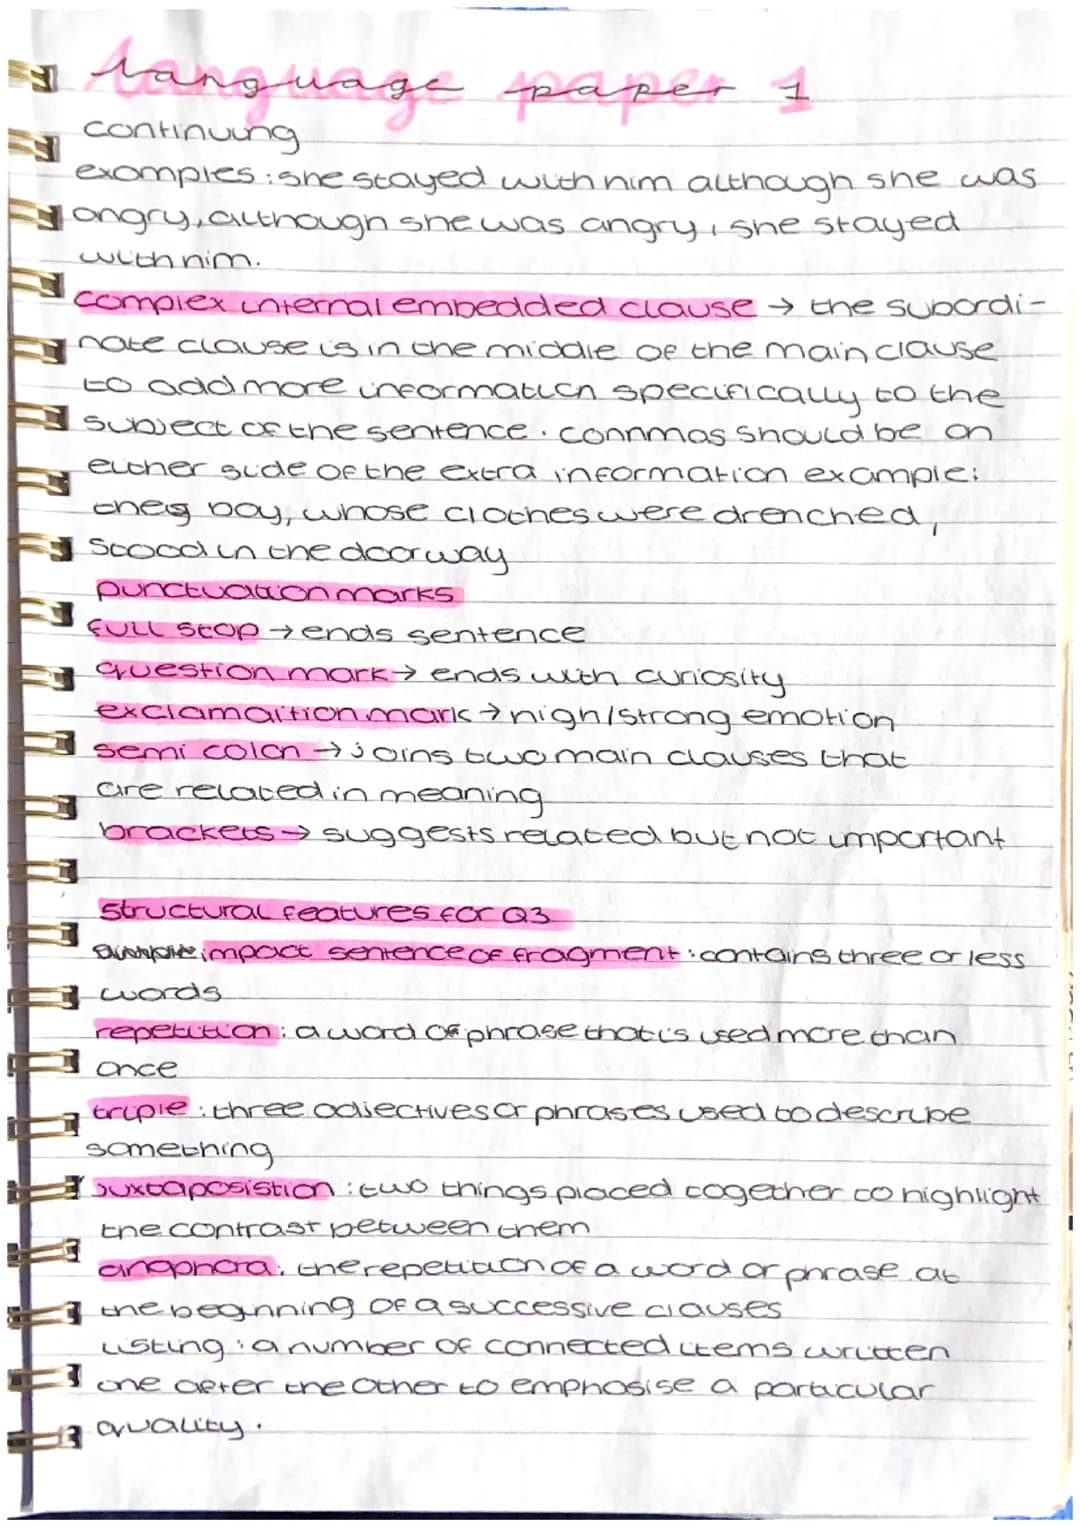 language paper 1
continuing
examples: she stayed with him although she was
angry, although she was angry, she stayed
with him.
complex internal embedded clause → the subordi-
nate clause is in the middle of the main clause
to add more information specifically to the
subject of the sentence. commas should be on
either side of the extra information example:
the boy, whose clothes were drenched,
stood in the doorway
punctuation marks
full stop → ends sentence
question mark → ends with curiosity
exclamaition mark → high/strong emotion
semi colon → joins two main clauses that
are related in meaning
brackets → suggests related but not important
structural features for Q3
impact sentence of fragment: contains three or less
words
repetition: a word or phrase that is used more than
once
triple: three adjectives or phrases used to describe
something
juxtaposistion: two things placed together to highlight
the contrast between them
anaphora: the repetition of a word or phrase at
the beginning of a successive clauses
listing: a number of connected items written
one after the other to emphasise a particular
quality.